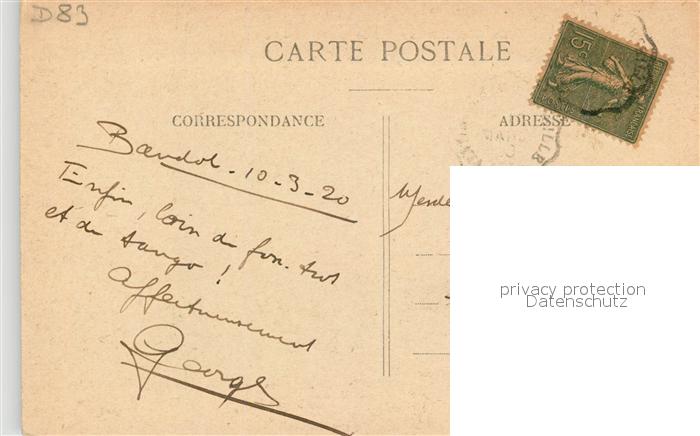 D83
CARTE POSTALE
CORRESPONDANCE
ADRESSE
15c
Bandol - 10-3-20
Enfin, loin du fox-trot
et du tango !
Affectueusement
George
privacy protection
Datenschutz